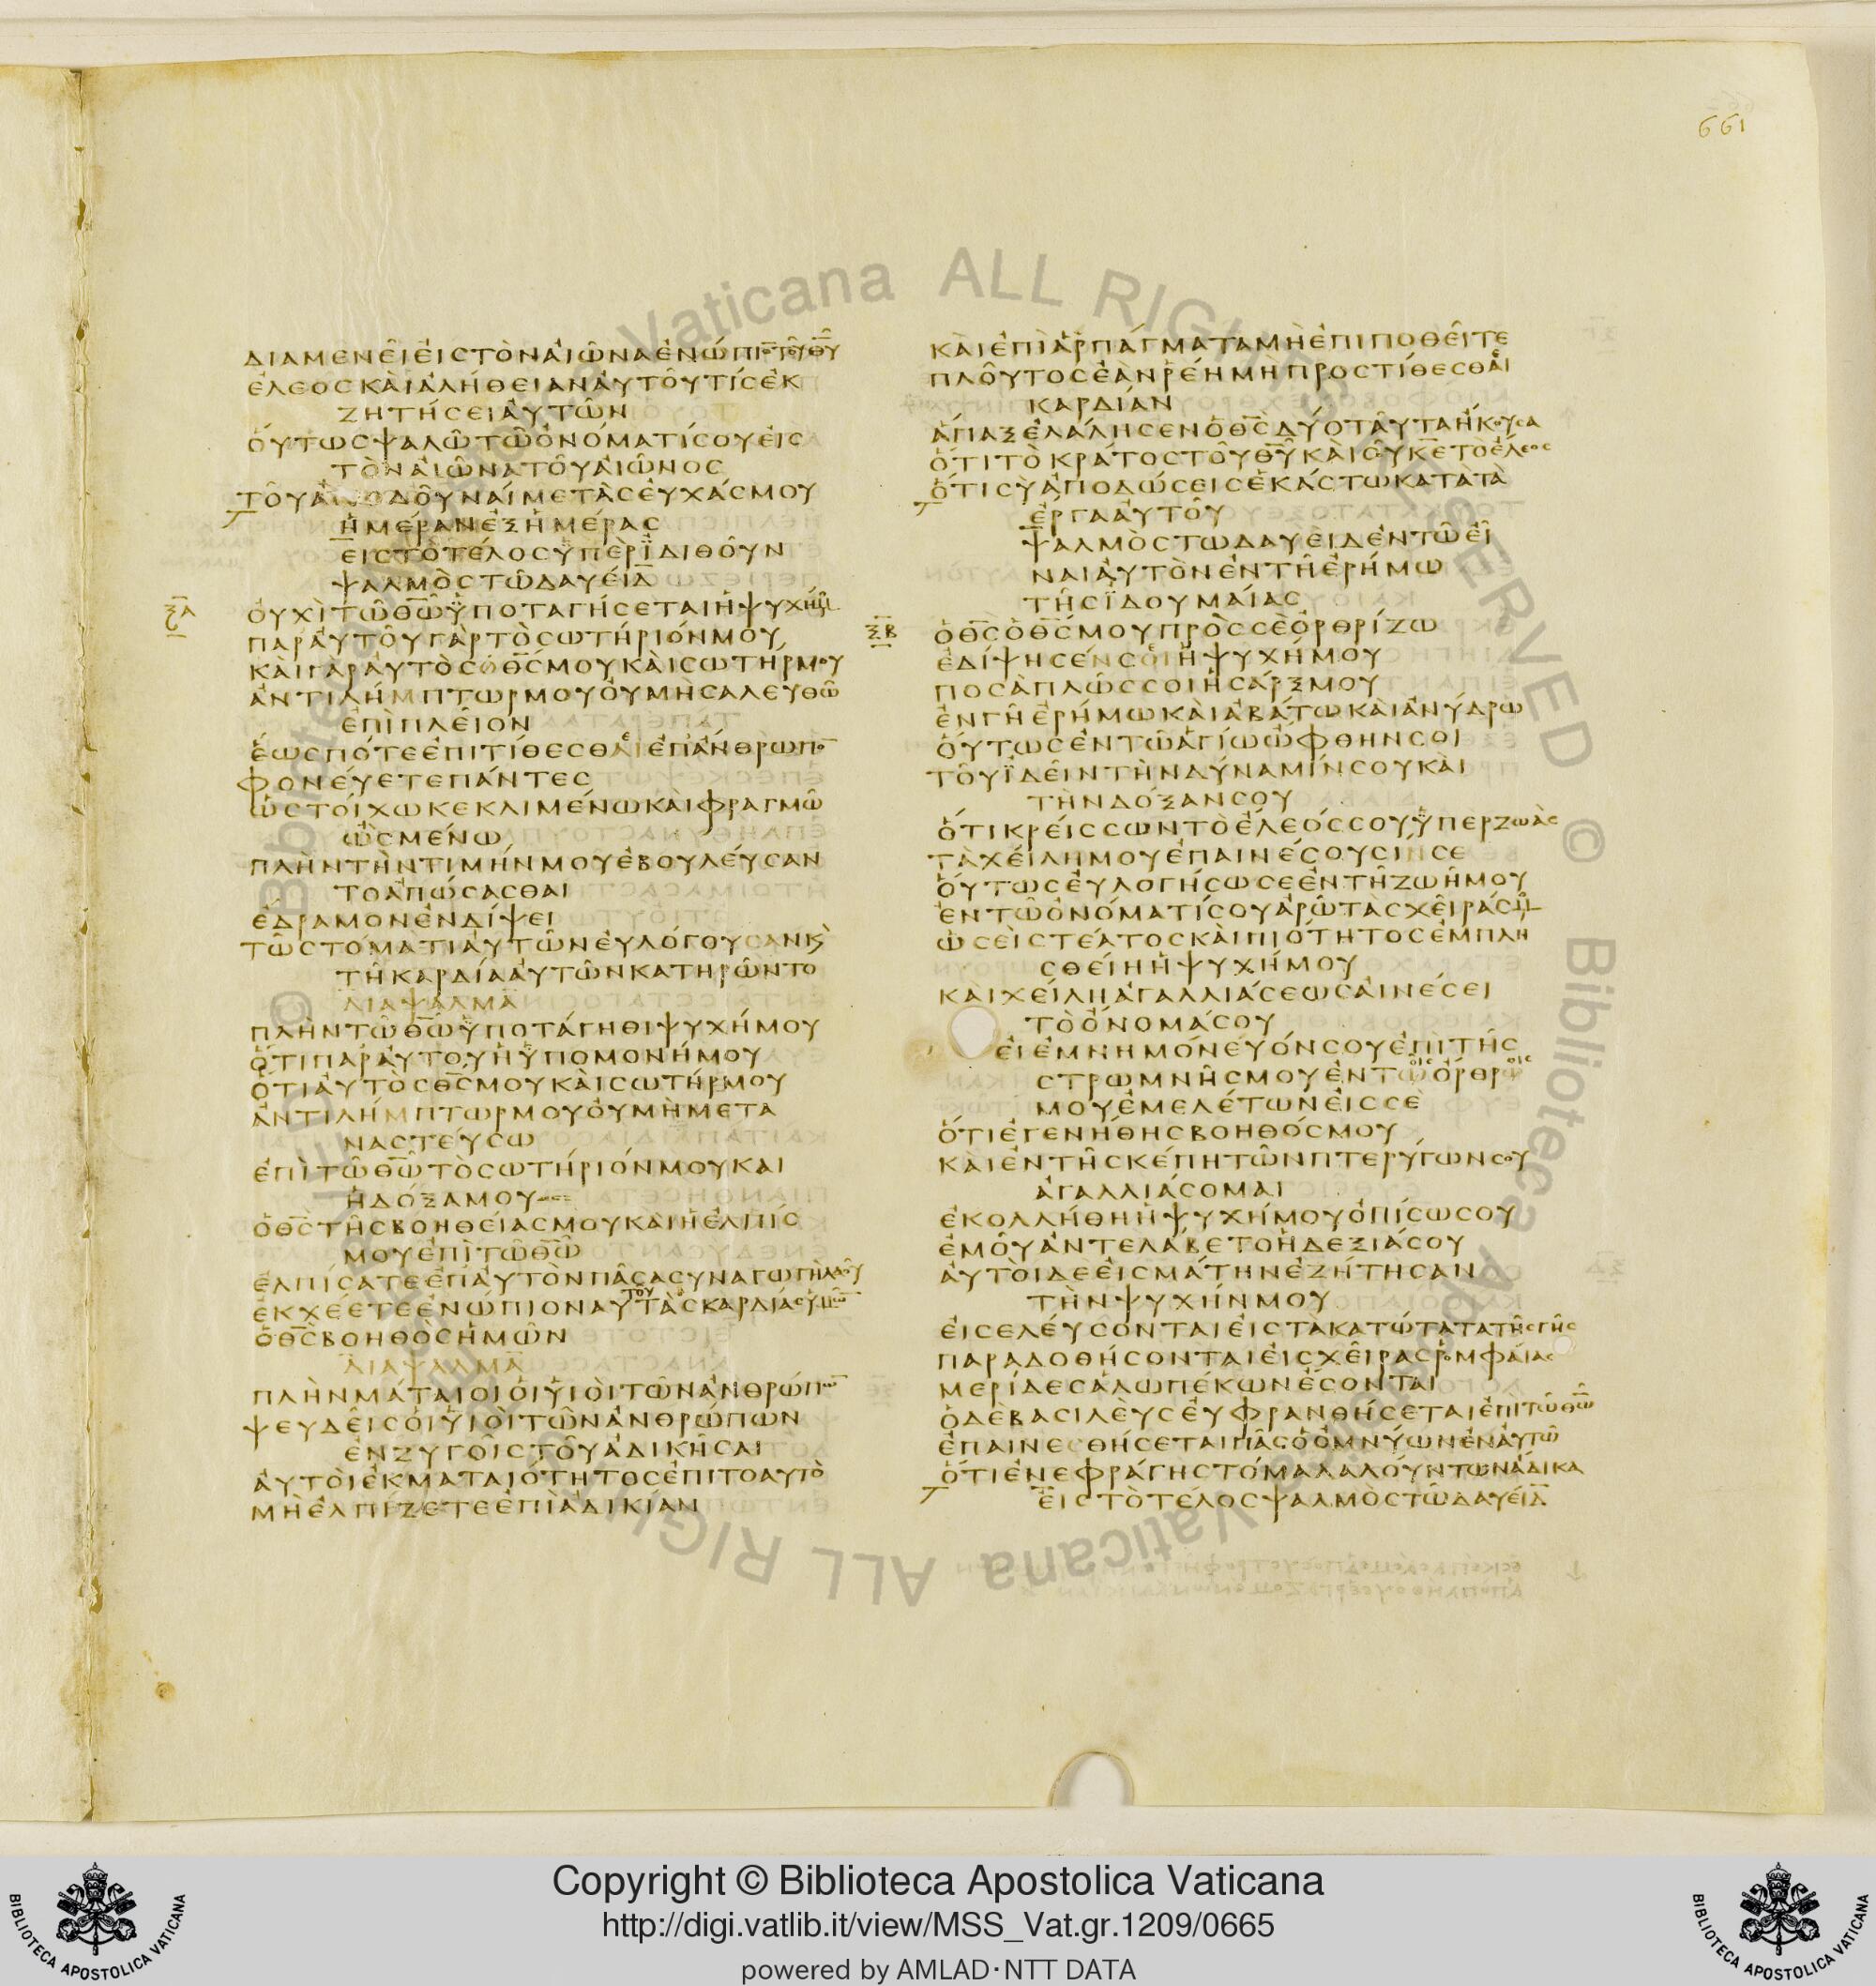 661
ΔΙΑΜΕΝΕΙ ΕΙΣ ΤΟΝ ΑΙΩΝΑ ΕΝΩΠΙΟΝ ΤΟΥ ΘΥ
ΕΛΕΟΣ ΚΑΙ ΑΛΗΘΕΙΑΝ ΑΥΤΟΥ ΤΙΣ ΕΚ
ΖΗΤΗΣΕΙ ΑΥΤΩΝ
ΟΥΤΩΣ ΨΑΛΩ ΤΩ ΟΝΟΜΑΤΙ ΣΟΥ ΕΙΣ
ΤΟΝ ΑΙΩΝΑ ΤΟΥ ΑΙΩΝΟΣ
ΤΟΥ ΑΠΟΔΟΥΝΑΙ ΜΕ ΤΑΣ ΕΥΧΑΣ ΜΟΥ
ΗΜΕΡΑΝ ΕΞ ΗΜΕΡΑΣ
ΕΙΣ ΤΟ ΤΕΛΟΣ ΥΠΕΡ ΙΔΙΘΟΥΝ
ΨΑΛΜΟΣ ΤΩ ΔΑΥΕΙΔ
ΞΑ
ΟΥΧΙ ΤΩ ΘΩ ΥΠΟΤΑΓΗΣΕΤΑΙ Η ΨΥΧΗ ΜΟΥ
ΠΑΡ ΑΥΤΟΥ ΓΑΡ ΤΟ ΣΩΤΗΡΙΟΝ ΜΟΥ
ΚΑΙ ΓΑΡ ΑΥΤΟΣ Ο ΘΣ ΜΟΥ ΚΑΙ ΣΩΤΗΡ ΜΟΥ
ΑΝΤΙΛΗΜΠΤΩΡ ΜΟΥ ΟΥ ΜΗ ΣΑΛΕΥΘΩ
ΕΠΙ ΠΛΕΙΟΝ
ΕΩΣ ΠΟΤΕ ΕΠΙΤΙΘΕΣΘΑΙ ΕΠ ΑΝΘΡΩΠΟΝ
ΦΟΝΕΥΕΤΕ ΠΑΝΤΕΣ
ΩΣ ΤΟΙΧΩ ΚΕΚΛΙΜΕΝΩ ΚΑΙ ΦΡΑΓΜΩ
ΩΣΜΕΝΩ
ΠΛΗΝ ΤΗΝ ΤΙΜΗΝ ΜΟΥ ΕΒΟΥΛΕΥΣΑΝ
ΤΟ ΑΠΩΣΑΣΘΑΙ
ΕΔΡΑΜΟΝ ΕΝ ΔΙΨΕΙ
ΤΩ ΣΤΟΜΑΤΙ ΑΥΤΩΝ ΕΥΛΟΓΟΥΣΑΝ Κ
ΤΗ ΚΑΡΔΙΑ ΑΥΤΩΝ ΚΑΤΗΡΩΝΤΟ
ΔΙΑΨΑΛΜΑ
ΠΛΗΝ ΤΩ ΘΩ ΥΠΟΤΑΓΗΘΙ ΨΥΧΗ ΜΟΥ
ΟΤΙ ΠΑΡ ΑΥΤΟΥ Η ΥΠΟΜΟΝΗ ΜΟΥ
ΟΤΙ ΑΥΤΟΣ ΘΣ ΜΟΥ ΚΑΙ ΣΩΤΗΡ ΜΟΥ
ΑΝΤΙΛΗΜΠΤΩΡ ΜΟΥ ΟΥ ΜΗ ΜΕΤΑ
ΝΑΣΤΕΥΣΩ
ΕΠΙ ΤΩ ΘΩ ΤΟ ΣΩΤΗΡΙΟΝ ΜΟΥ ΚΑΙ
Η ΔΟΞΑ ΜΟΥ
Ο ΘΣ ΤΗΣ ΒΟΗΘΕΙΑΣ ΜΟΥ ΚΑΙ Η ΕΛΠΙΣ
ΜΟΥ ΕΠΙ ΤΩ ΘΩ
ΕΛΠΙΣΑΤΕ ΕΠ ΑΥΤΟΝ ΠΑΣΑ ΣΥΝΑΓΩΓΗ ΛΑΟΥ
ΕΚΧΕΕΤΕ ΕΝΩΠΙΟΝ ΑΥΤΟΥ ΤΑΣ ΚΑΡΔΙΑΣ ΥΜΩΝ
Ο ΘΣ ΒΟΗΘΟΣ ΗΜΩΝ
ΔΙΑΨΑΛΜΑ
ΠΛΗΝ ΜΑΤΑΙΟΙ ΟΙ ΥΙΟΙ ΤΩΝ ΑΝΘΡΩΠΩΝ
ΨΕΥΔΕΙΣ ΟΙ ΥΙΟΙ ΤΩΝ ΑΝΘΡΩΠΩΝ
ΕΝ ΖΥΓΟΙΣ ΤΟΥ ΑΔΙΚΗΣΑΙ
ΑΥΤΟΙ ΕΚ ΜΑΤΑΙΟΤΗΤΟΣ ΕΠΙ ΤΟ ΑΥΤΟ
ΜΗ ΕΛΠΙΖΕΤΕ ΕΠΙ ΑΔΙΚΙΑΝ
ΚΑΙ ΕΠΙ ΑΡΠΑΓΜΑΤΑ ΜΗ ΕΠΙΠΟΘΕΙΤΕ
ΠΛΟΥΤΟΣ ΕΑΝ ΡΕΗ ΜΗ ΠΡΟΣΤΙΘΕΣΘΑΙ
ΚΑΡΔΙΑΝ
ΑΠΑΞ ΕΛΑΛΗΣΕΝ Ο ΘΣ ΔΥΟ ΤΑΥΤΑ ΗΚΟΥΣΑ
ΟΤΙ ΤΟ ΚΡΑΤΟΣ ΤΟΥ ΘΥ ΚΑΙ ΣΟΥ ΚΕ ΤΟ ΕΛΕΟΣ
ΟΤΙ ΣΥ ΑΠΟΔΩΣΕΙΣ ΕΚΑΣΤΩ ΚΑΤΑ ΤΑ
ΕΡΓΑ ΑΥΤΟΥ
ΨΑΛΜΟΣ ΤΩ ΔΑΥΕΙΔ ΕΝ ΤΩ ΕΙ
ΝΑΙ ΑΥΤΟΝ ΕΝ ΤΗ ΕΡΗΜΩ
ΤΗΣ ΙΔΟΥΜΑΙΑΣ
ΞΒ
Ο ΘΣ Ο ΘΣ ΜΟΥ ΠΡΟΣ ΣΕ ΟΡΘΡΙΖΩ
ΕΔΙΨΗΣΕΝ ΣΟΙ Η ΨΥΧΗ ΜΟΥ
ΠΟΣΑΠΛΩΣ ΣΟΙ Η ΣΑΡΞ ΜΟΥ
ΕΝ ΓΗ ΕΡΗΜΩ ΚΑΙ ΑΒΑΤΩ ΚΑΙ ΑΝΥΔΡΩ
ΟΥΤΩΣ ΕΝ ΤΩ ΑΓΙΩ ΩΦΘΗΝ ΣΟΙ
ΤΟΥ ΙΔΕΙΝ ΤΗΝ ΔΥΝΑΜΙΝ ΣΟΥ ΚΑΙ
ΤΗΝ ΔΟΞΑΝ ΣΟΥ
ΟΤΙ ΚΡΕΙΣΣΩΝ ΤΟ ΕΛΕΟΣ ΣΟΥ ΥΠΕΡ ΖΩΑΣ
ΤΑ ΧΕΙΛΗ ΜΟΥ ΕΠΑΙΝΕΣΟΥΣΙΝ ΣΕ
ΟΥΤΩΣ ΕΥΛΟΓΗΣΩ ΣΕ ΕΝ ΤΗ ΖΩΗ ΜΟΥ
ΕΝ ΤΩ ΟΝΟΜΑΤΙ ΣΟΥ ΑΡΩ ΤΑΣ ΧΕΙΡΑΣ ΜΟΥ
ΩΣΕΙ ΣΤΕΑΤΟΣ ΚΑΙ ΠΙΟΤΗΤΟΣ ΕΜΠΛΗ
ΣΘΕΙΗ Η ΨΥΧΗ ΜΟΥ
ΚΑΙ ΧΕΙΛΗ ΑΓΑΛΛΙΑΣΕΩΣ ΑΙΝΕΣΕΙ
ΤΟ ΟΝΟΜΑ ΣΟΥ
ΕΙ ΕΜΝΗΜΟΝΕΥΟΝ ΣΟΥ ΕΠΙ ΤΗΣ
ΣΤΡΩΜΝΗΣ ΜΟΥ ΕΝ ΤΟΙΣ ΟΡΘΡΟΙΣ
ΜΟΥ ΕΜΕΛΕΤΩΝ ΕΙΣ ΣΕ
ΟΤΙ ΕΓΕΝΗΘΗΣ ΒΟΗΘΟΣ ΜΟΥ
ΚΑΙ ΕΝ ΤΗ ΣΚΕΠΗ ΤΩΝ ΠΤΕΡΥΓΩΝ ΣΟΥ
ΑΓΑΛΛΙΑΣΟΜΑΙ
ΕΚΟΛΛΗΘΗ Η ΨΥΧΗ ΜΟΥ ΟΠΙΣΩ ΣΟΥ
ΕΜΟΥ ΑΝΤΕΛΑΒΕΤΟ Η ΔΕΞΙΑ ΣΟΥ
ΑΥΤΟΙ ΔΕ ΕΙΣ ΜΑΤΗΝ ΕΖΗΤΗΣΑΝ
ΤΗΝ ΨΥΧΗΝ ΜΟΥ
ΕΙΣΕΛΕΥΣΟΝΤΑΙ ΕΙΣ ΤΑ ΚΑΤΩΤΑΤΑ ΤΗΣ ΓΗΣ
ΠΑΡΑΔΟΘΗΣΟΝΤΑΙ ΕΙΣ ΧΕΙΡΑΣ ΡΟΜΦΑΙΑΣ
ΜΕΡΙΔΕΣ ΑΛΩΠΕΚΩΝ ΕΣΟΝΤΑΙ
Ο ΔΕ ΒΑΣΙΛΕΥΣ ΕΥΦΡΑΝΘΗΣΕΤΑΙ ΕΠΙ ΤΩ ΘΩ
ΕΠΑΙΝΕΣΘΗΣΕΤΑΙ ΠΑΣ Ο ΟΜΝΥΩΝ ΕΝ ΑΥΤΩ
ΟΤΙ ΕΝΕΦΡΑΓΗ ΣΤΟΜΑ ΛΑΛΟΥΝΤΩΝ ΑΔΙΚΑ
ΕΙΣ ΤΟ ΤΕΛΟΣ ΨΑΛΜΟΣ ΤΩ ΔΑΥΕΙΔ
Copyright © Biblioteca Apostolica Vaticana
http://digi.vatlib.it/view/MSS_Vat.gr.1209/0665
powered by AMLAD·NTT DATA
BIBLIOTECA APOSTOLICA VATICANA
BIBLIOTECA APOSTOLICA VATICANA